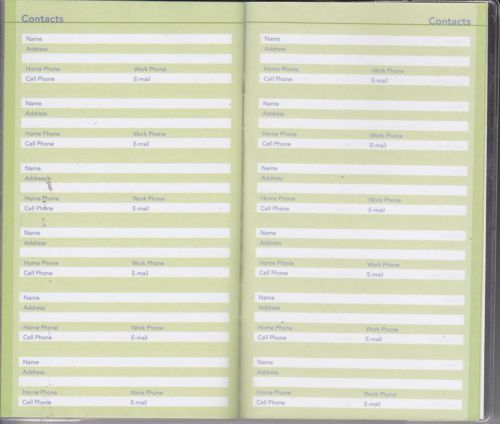 Contacts
Name
Address
Home Phone Work Phone
Cell Phone E-mail
Name
Address
Home Phone Work Phone
Cell Phone E-mail
Name
Address
Home Phone Work Phone
Cell Phone E-mail
Name
Address
Home Phone Work Phone
Cell Phone E-mail
Name
Address
Home Phone Work Phone
Cell Phone E-mail
Name
Address
Home Phone Work Phone
Cell Phone E-mail
Contacts
Name
Address
Home Phone Work Phone
Cell Phone E-mail
Name
Address
Home Phone Work Phone
Cell Phone E-mail
Name
Address
Home Phone Work Phone
Cell Phone E-mail
Name
Address
Home Phone Work Phone
Cell Phone E-mail
Name
Address
Home Phone Work Phone
Cell Phone E-mail
Name
Address
Home Phone Work Phone
Cell Phone E-mail